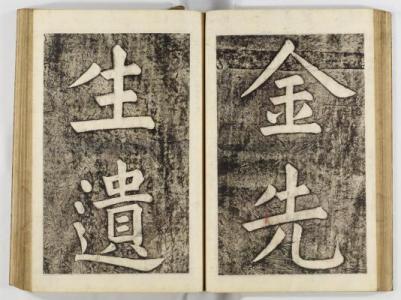 金先
生遺